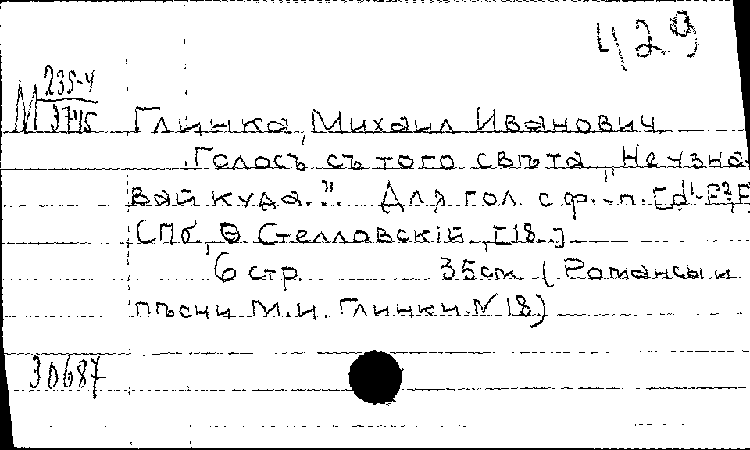 429
М 235-4
3745
Глинка, Михаил Иванович
Голосъ съ того свѣта „Не узна-
вай куда..." Для гол. с ф.-п.
СПб, Ѳ Стелловскій, [18..]
6 стр. 35см (Романсы и
пѣсни М.И. Глинки N 18)
30687